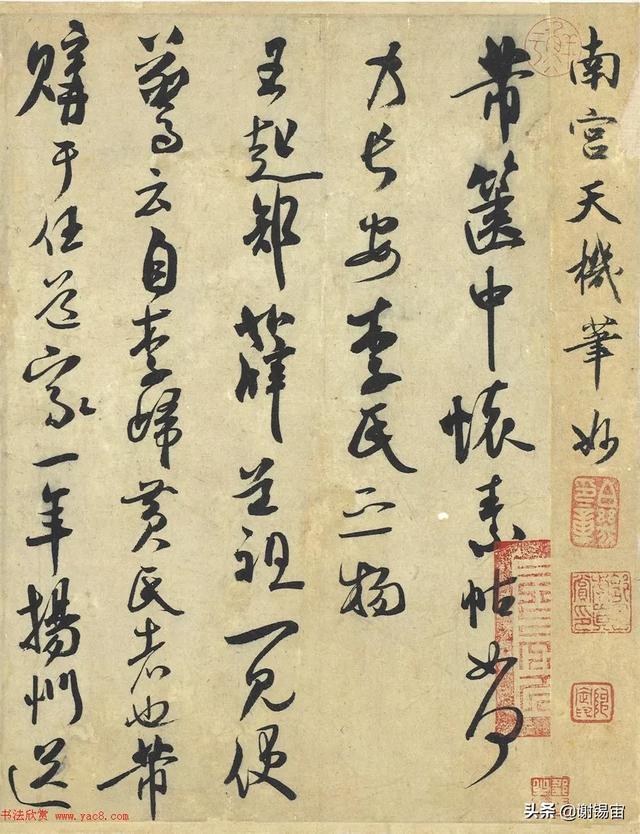 南宮天機筆妙
芾篋中懷素帖如何
乃長安李氏之物
王起部薛道祖一見便
驚云自李歸黃氏者也芾
購于任道家一年揚州送
书法欣赏 www.yac8.com
头条 @谢锡宙